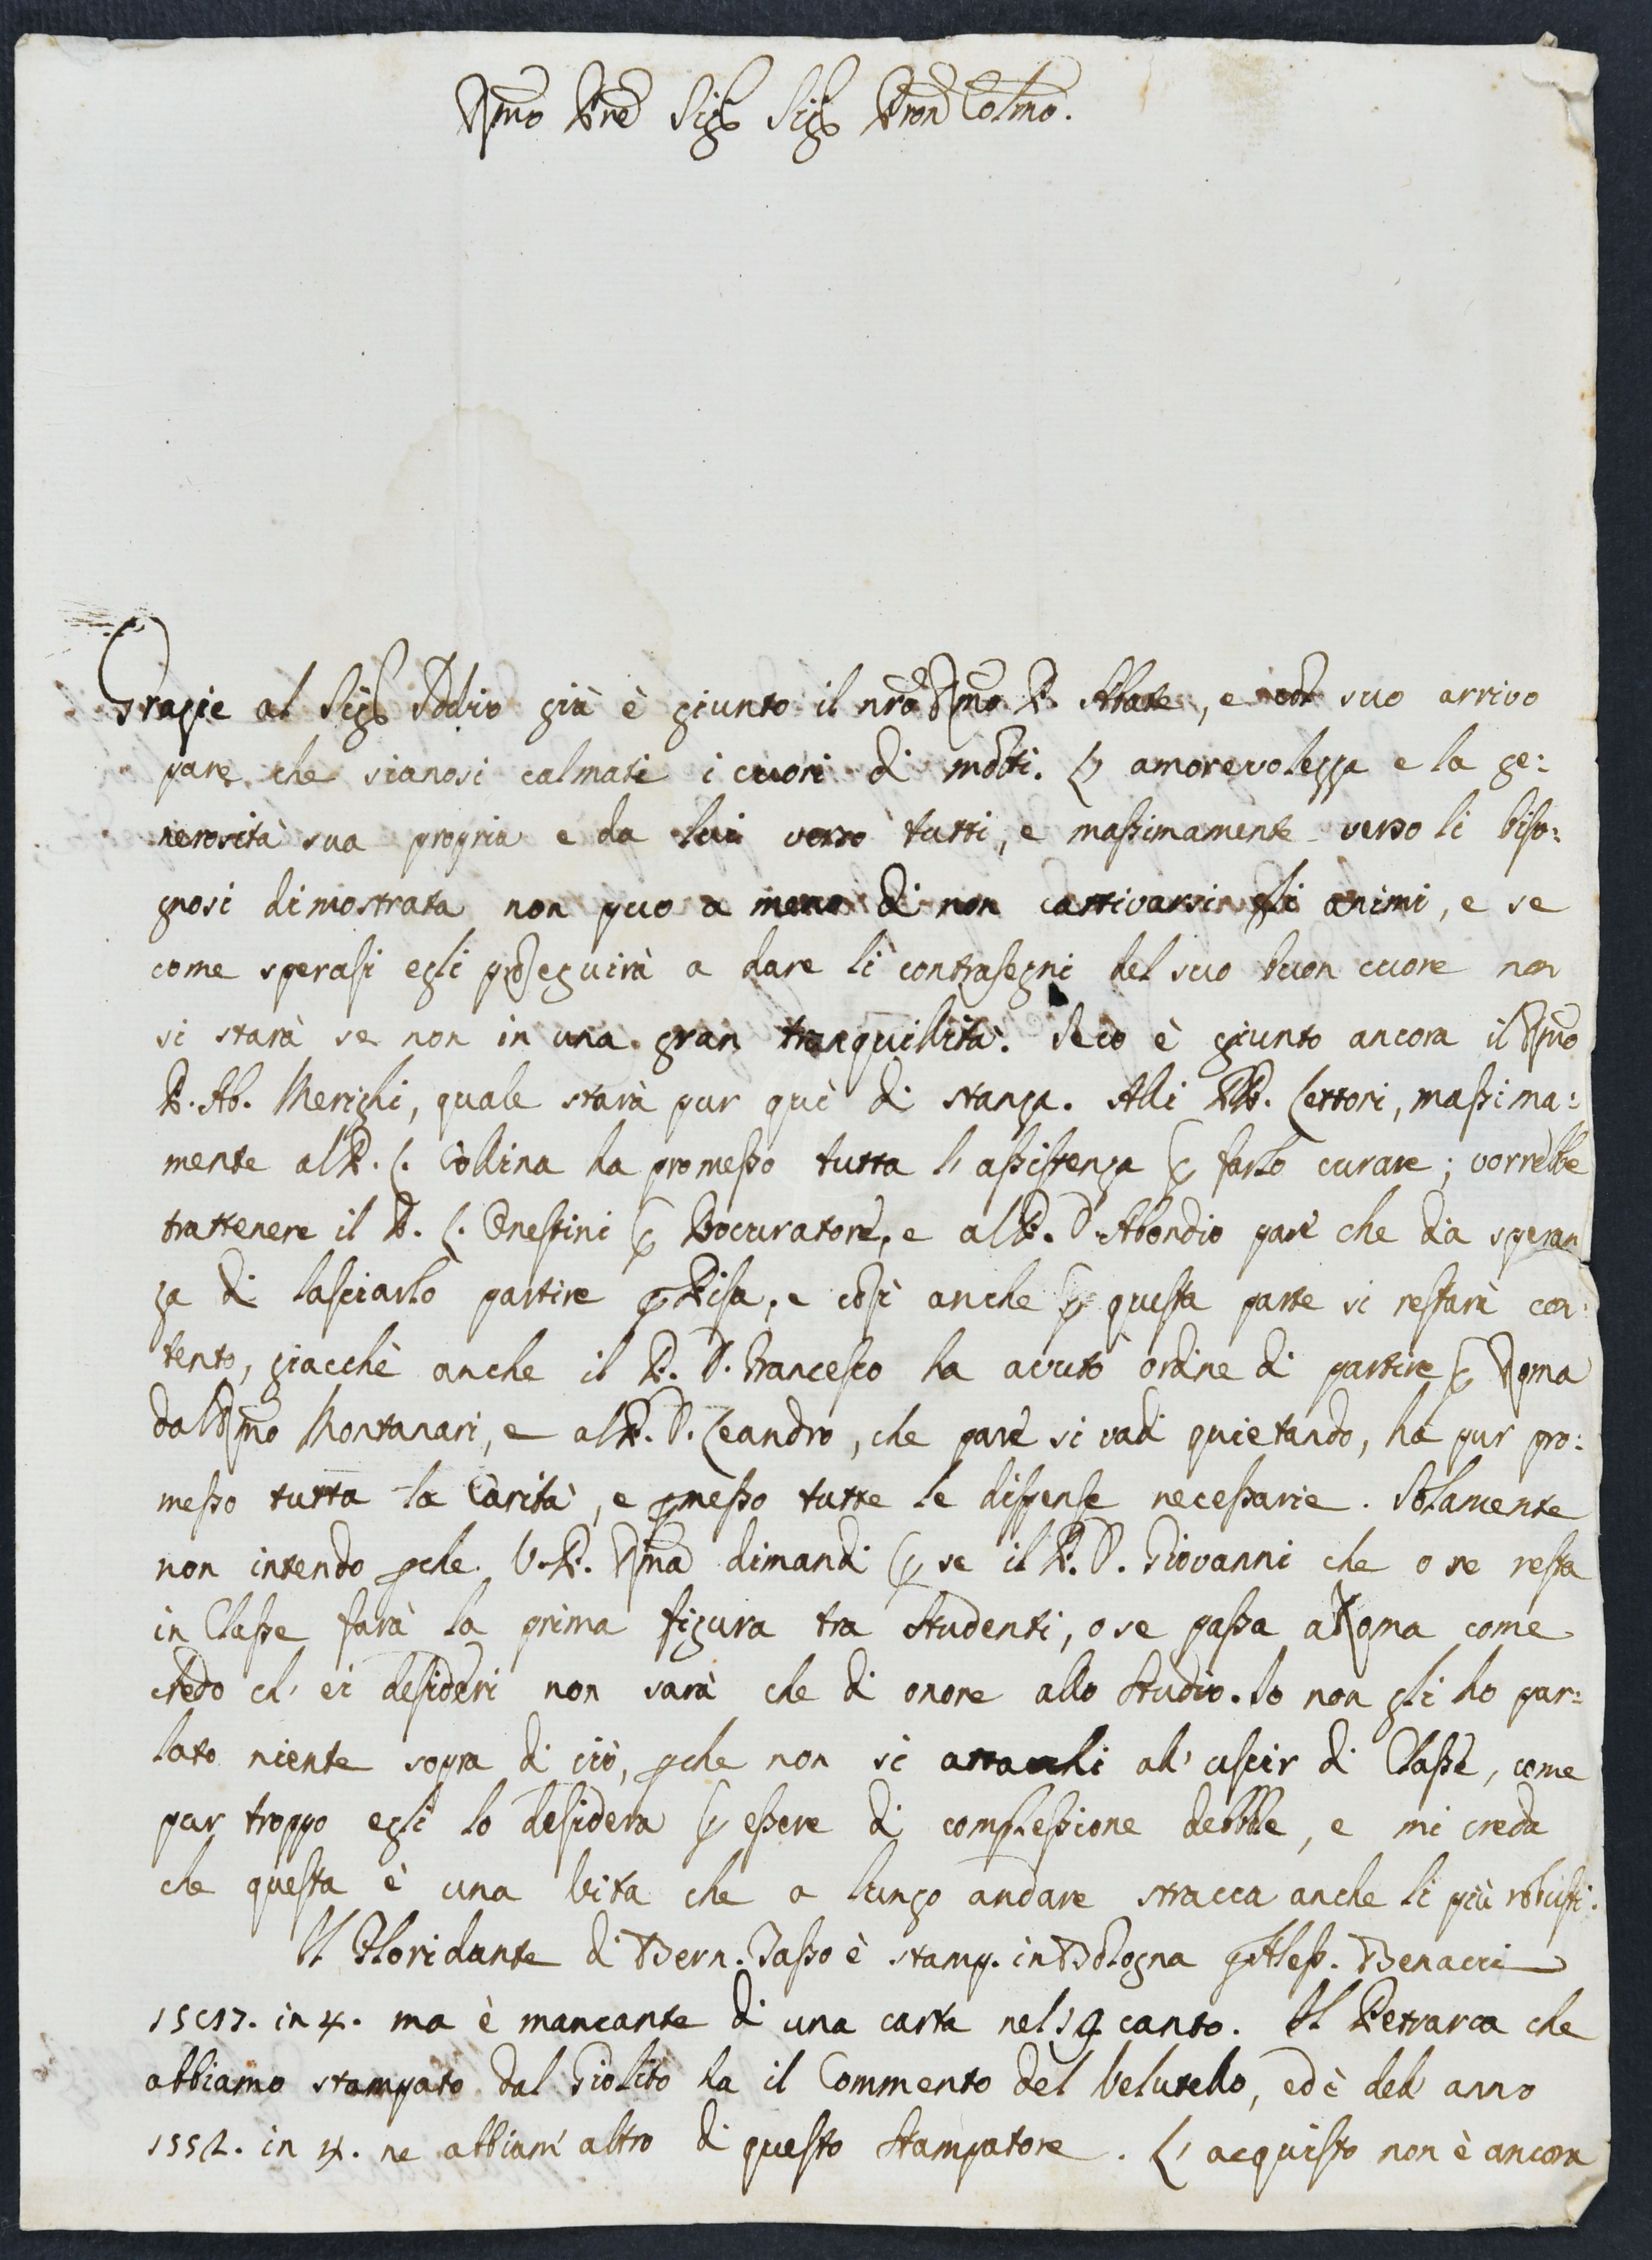 Rmo Pre Sigr Sigr Pron Colmo.
Grazie al Sigr Iddio già è giunto il nro Rmo P. Abate, e col suo arrivo
pare che sianosi calmati i cuori di molti. L' amorevolezza e la ge:
nerosità sua propria e da lui verso tutti, e massimamente verso li biso:
gnosi dimostrata non può a meno di non cattivarsi gli animi, e se
come sperasi egli proseguirà a dare li contrasegni del suo buon cuore non
si starà se non in una gran tranquillità. Seco è giunto ancora il Rmo
P. Ab. Merighi, quale starà pur quì di stanza. Alli PP. Lettori, massima:
mente al P. L. Collina ha promesso tutta l' assistenza p farlo curare; vorrebbe
trattenere il P. L. Onestini p Procuratore, e al P. D. Abondio pare che dia speran
za di lasciarlo partire p Pisa, e così anche p questa parte si restarà con:
tento, giacchè anche il P. D. Francesco ha avuto ordine di partire p Roma
dal Rmo Montanari, e al P. D. Leandro, che pare si vadi quietando, ha pur pro:
messo tutta la Carità, e pmesso tutte le dispense necessarie. Solamente
non intendo pche V. P. Rma dimandi p se il P. D. Giovanni che o se resta
in Classe farà la prima figura tra Studenti, o se passa a Roma come
credo ch' ei desideri non sarà che di onore allo Studio. Io non gli ho par:
lato niente sopra di ciò, pche non si attacchi all' uscir di Classe, come
pur troppo egli lo desidera p essere di complessione debole, e mi creda
che questa è una Vita che a lungo andare stracca anche li più robusti.
Il Floridante di Bern. Tasso è stamp. in Bologna p Aless. Benacci
1587. in 4. ma è mancante di una carta nel 19 canto. Il Petrarca che
abbiamo stampato dal Giolito ha il Commento del Velutello, ed è dell' anno
1552. in 4. ne abbiam' altro di questo Stampatore. L' acquisto non è ancora